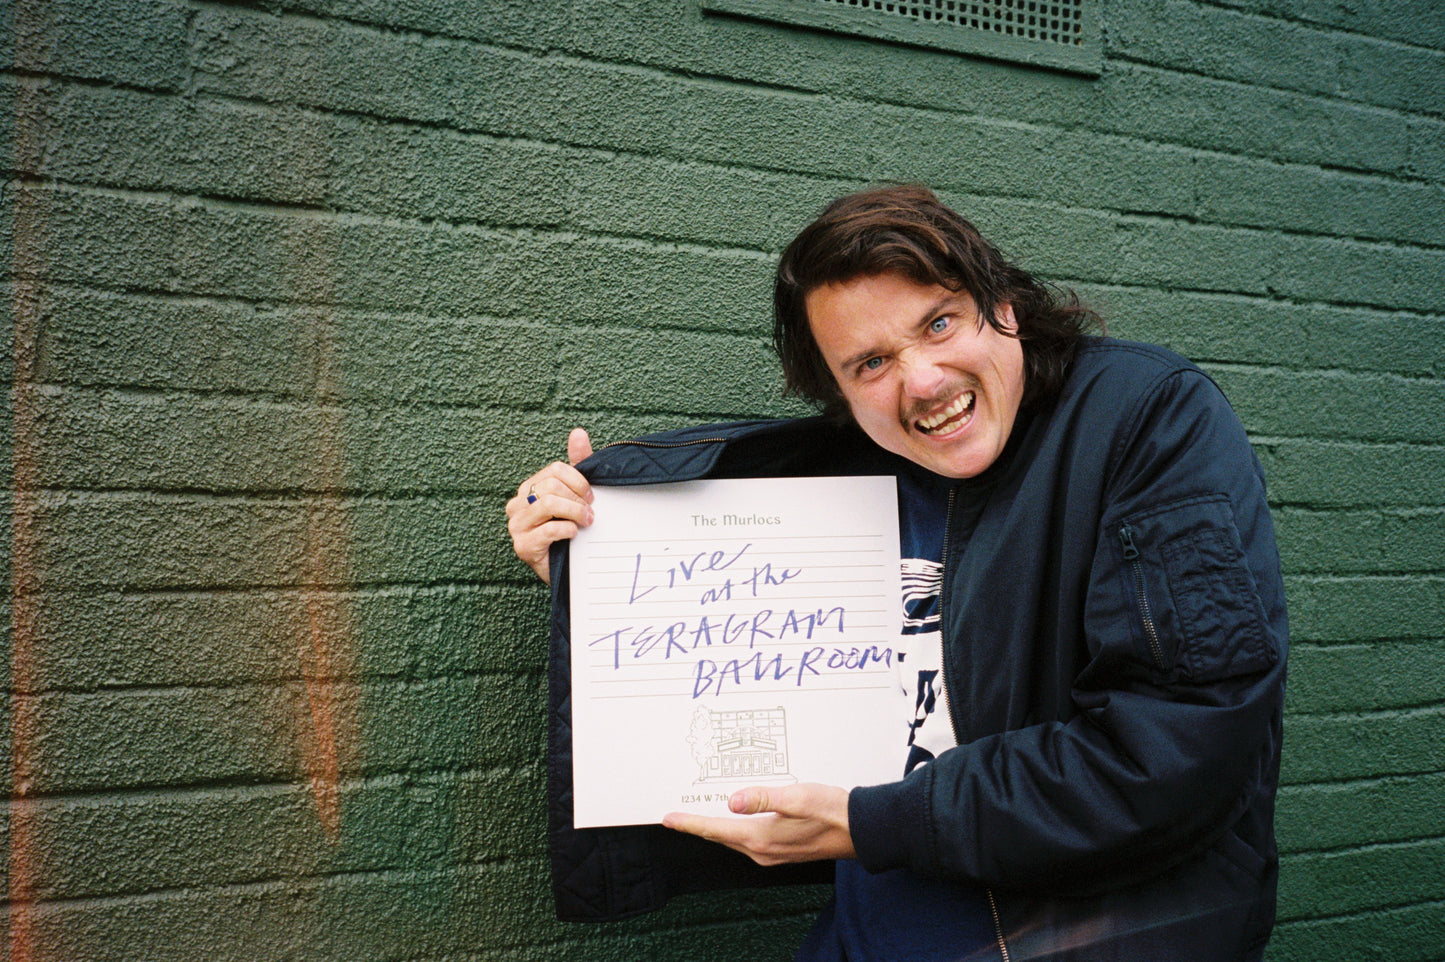 The Murlocs
Live
at the
TERAGRAM
BALLROOM
1234 W 7th